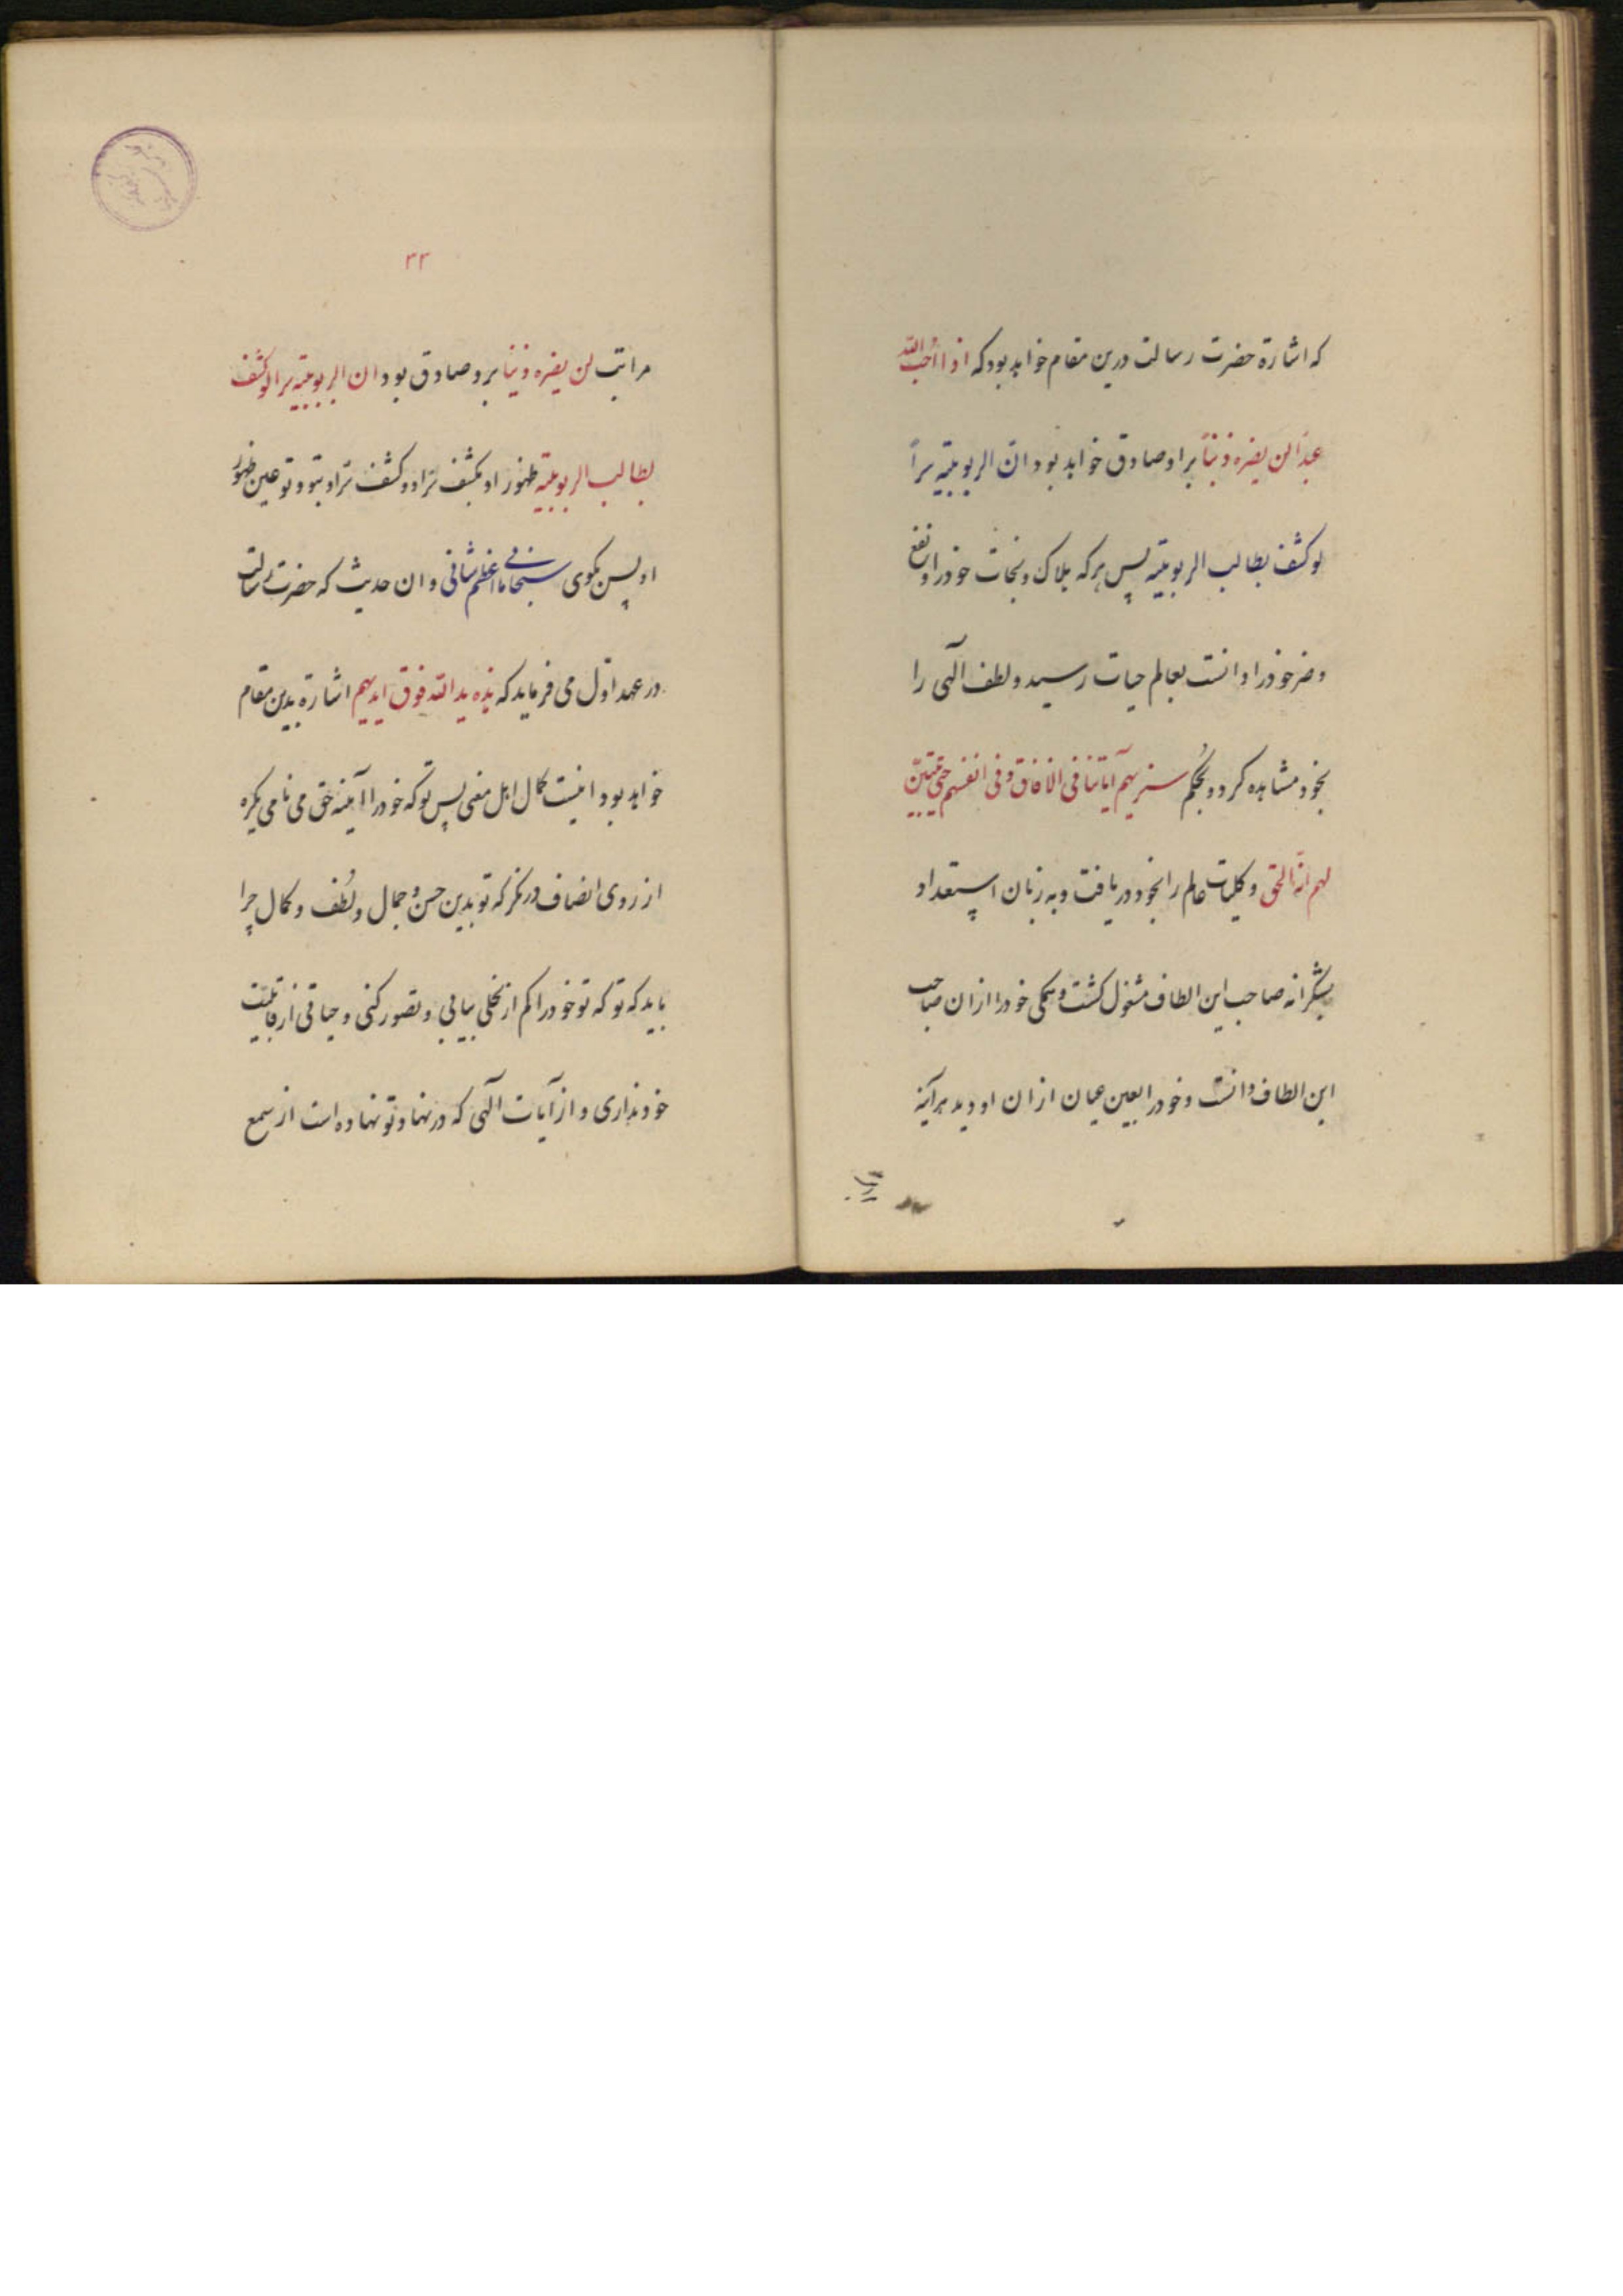 که اشارة حضرت رسالت درین مقام خواهد بود که اذا احب الله
عبدا لن یضره ذنبا براو صادق خواهد بود ان الربوبیته سراً
لو کشف بطالب الربوبیته پس هرکه هلاک و نجات خود را و نفع
و ضر خود را دانست بعالم حیات رسید و لطف آلهی را
بخود مشاهده کرد و بحکم سنریهم آیاتنا فی الافاق و فی انفسهم حتی یتبین
لهم انه الحق و کلیات عالم را بخود دریافت و به زبان استعداد
بشکرانه صاحب این الطاف مشغول کشت و همکی خود را ازان صاحب
این الطاف دانست و خود را بعین عیان ازان او دید هرآینه
۳۳
مراتب لن یضره ذنبا برو صادق بود ان الربوبیته سرا لو کشف
لطالب الربوبیته ظهور او بکشف تراد و کشف تراد بتو و تو عین ظهور
او پس بکوی سبحانی ما اعظم شانی و ان حدیث که حضرت رسالت
در عهد اول می فرماید که هذه ید الله فوق ایدیهم اشارة بدین مقام
خواهد بود اینست کمال اهل معنی پس تو که خود را آینه حق می نامی یکره
از روی انصاف در نکر که تو بدین حسن و جمال و لُطف و کمال چرا
باید که تو که تو خود را کم از نخلی بیانی و تصور کنی و حیاتی از قابلیت
خود نداری و از آیات آلهی که در نهاد تو نهاده است از سمع